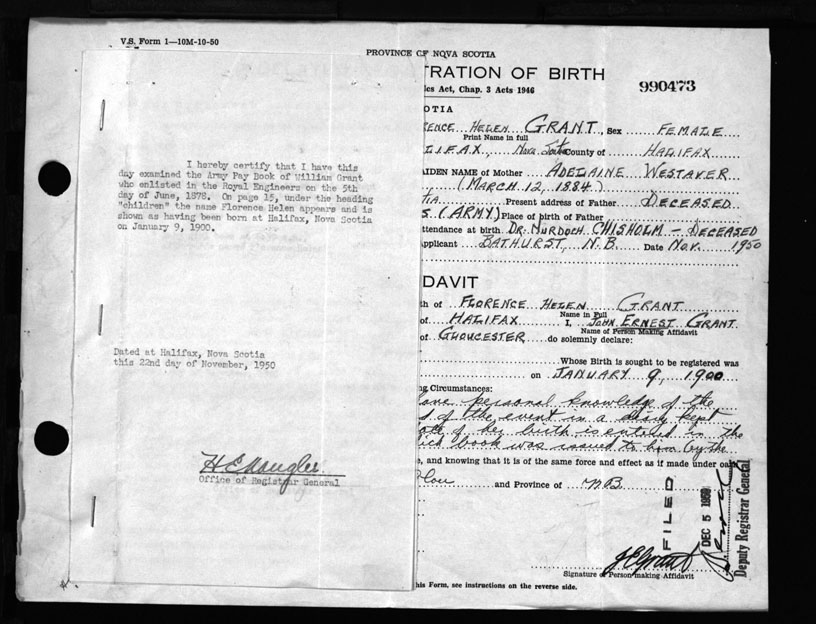 V.S. Form 1—10M-10-50
I hereby certify that I have this
day examined the Army Pay Book of William Grant
who enlisted in the Royal Engineers on the 5th
day of June, 1878. On page 15, under the heading
"children" the name Florence Helen appears and is
shown as having been born at Halifax, Nova Scotia
on January 9, 1900.
Dated at Halifax, Nova Scotia
this 22nd day of November, 1950
Office of Registrar General
PROVINCE OF NOVA SCOTIA
TRATION OF BIRTH
990473
ics Act, Chap. 3 Acts 1946
OTIA
ENCE HELEN GRANT, Sex FEMALE
Print Name in full
LIFAX, Nova Scotia County of HALIFAX
AIDEN NAME of Mother ADELAINE WESTAVER
(MARCH 12, 1884.)
TIA Present address of Father DECEASED
S (ARMY) Place of birth of Father
ttendance at birth DR. MURDOCH CHISHOLM — DECEASED
pplicant BATHURST, N.B. Date NOV. 1950
DAVIT
th of FLORENCE HELEN GRANT
Name in Full
of HALIFAX I, JOHN ERNEST GRANT
Name of Person Making Affidavit
of GLOUCESTER do solemnly declare:
Whose Birth is sought to be registered was
on JANUARY 9, 1900
ng Circumstances:
ave personal knowledge of the
s of the event in a diary kept
ote of her birth is entered in the
ich book was issued to him by the
e, and knowing that it is of the same force and effect as if made under oath
and Province of N.B.
FILED
DEC 5 1950
Deputy Registrar General
J E Grant
Signature of Person making Affidavit
his Form, see instructions on the reverse side.